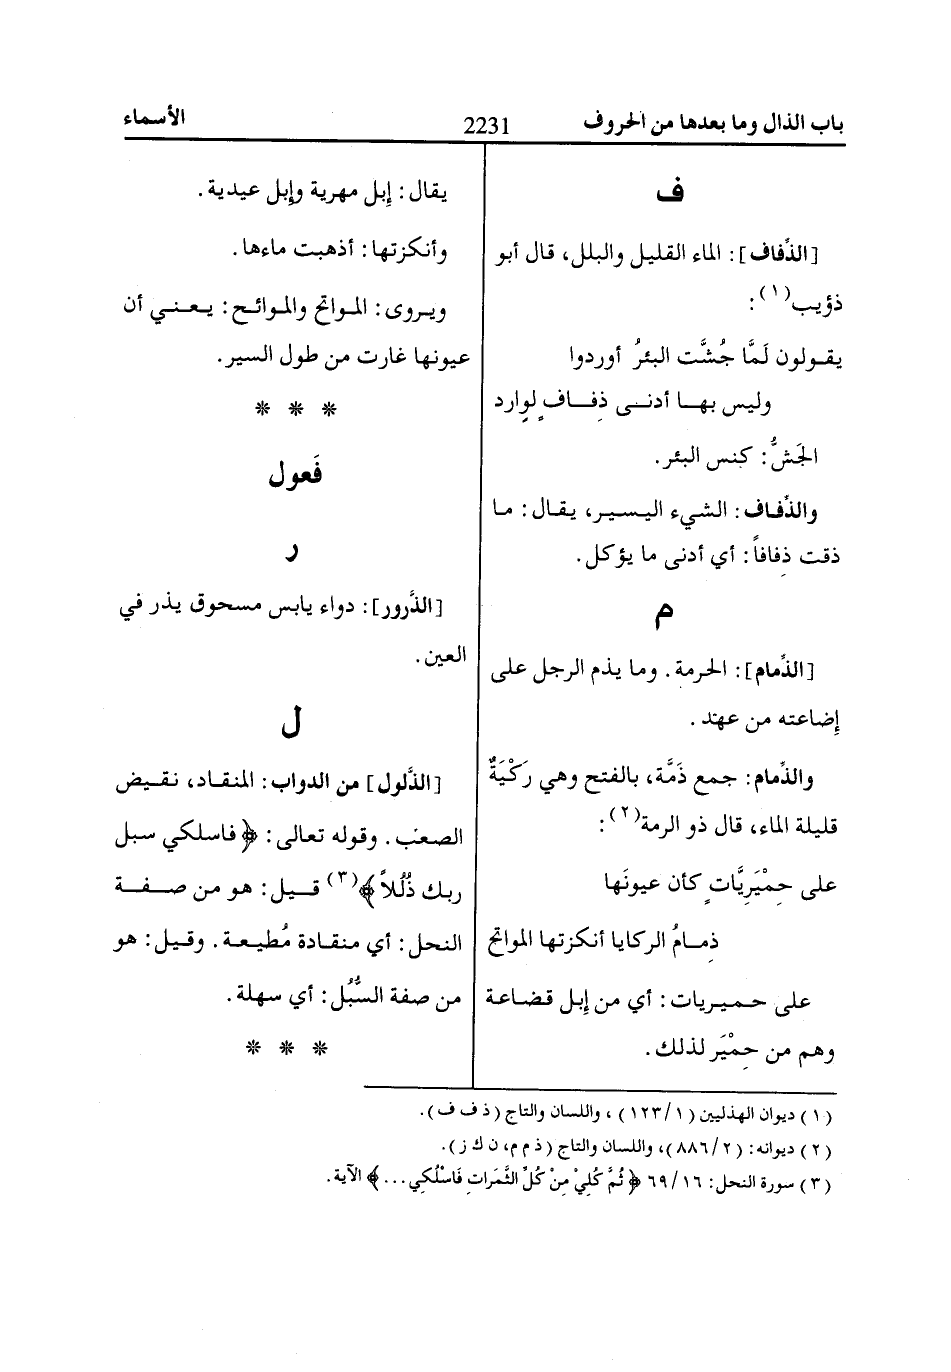 باب الذال وما بعدها من الحروف 2231 الأسماء
ف
[الذِّفاف]: الماء القليل والبلل، قال أبو
ذؤيب(١):
يقولون لَمَّا جُشَّت البئرُ أوردوا
وليس بها أدنى ذِفافٍ لِوارد
الجَشُّ: كنس البئر.
والذِّفاف: الشيء اليسير، يقال: ما
ذقت ذِفافاً: أي أدنى ما يؤكل.
م
[الذِّمام]: الحرمة. وما يذم الرجل على
إضاعته من عهد.
والذِّمام: جمع ذَمَّة، بالفتح وهي رَكْيَةٌ
قليلة الماء، قال ذو الرمة(٢):
على حِمْيَرِيَّاتٍ كأن عيونَها
ذِمامُ الركايا أنكزتها المواتح
على حميريات: أي من إبل قضاعة
وهم من حِمْيَر لذلك.
يقال: إبل مهرية وإبل عيدية.
وأنكزتها: أذهبت ماءها.
ويروى: المواتح والموائح: يعني أن
عيونها غارت من طول السير.
* * *
فَعول
ر
[الذَّرور]: دواء يابس مسحوق يذر في
العين.
ل
[الذَّلول] من الدواب: المنقاد، نقيض
الصعب. وقوله تعالى: ﴿فاسلكي سبل
ربك ذُلُلاً﴾(٣) قيل: هو من صفة
النحل: أي منقادة مُطيعة. وقيل: هو
من صفة السُّبُل: أي سهلة.
* * *
(١) ديوان الهذليين (١/ ١٢٣)، واللسان والتاج (ذ ف ف).
(٢) ديوانه: (٢/ ٨٨٦)، واللسان والتاج (ذ م م، ن ك ز).
(٣) سورة النحل: ١٦/ ٦٩ ﴿ثُمَّ كُلِيْ مِنْ كُلِّ الثَّمَراتِ فَاسْلُكِي...﴾ الآية.